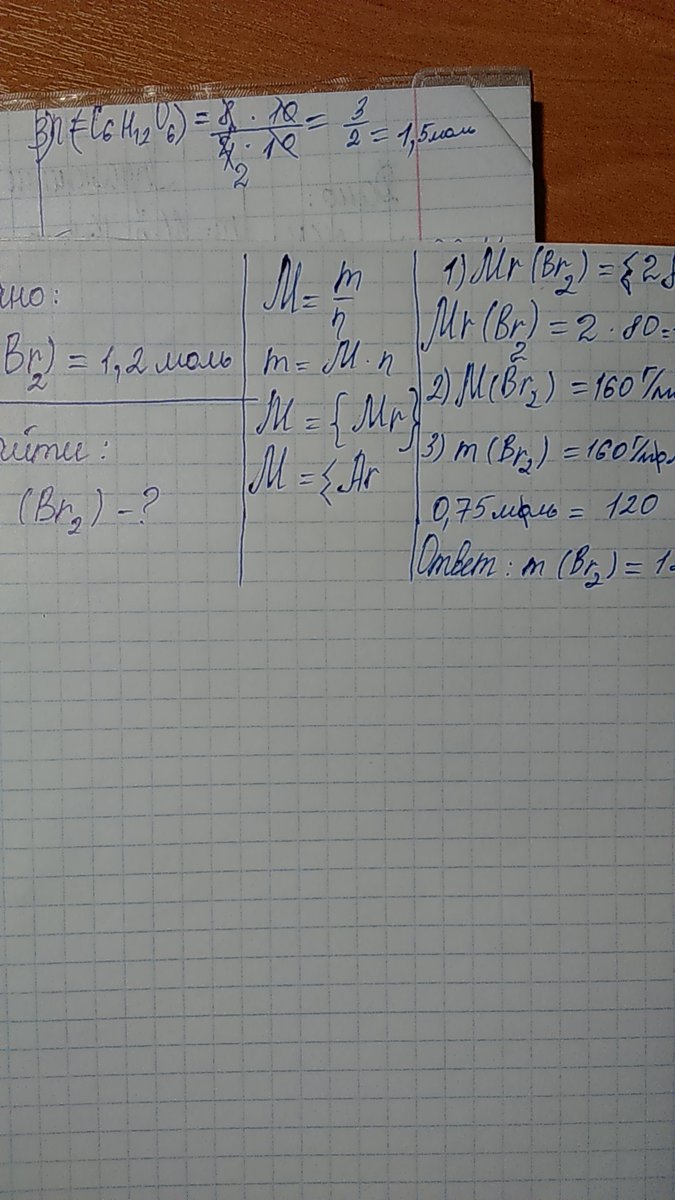 3) n = C₆H₁₂O₆) = 8 · 10 / 4 · 10 2 = 3/2 = 1,5 моль
ано:
Br₂) = 1,2 моль
йти:
(Br₂) – ?
M = m/n
m = M · n
M = { Mr }
M = { Ar
1) Mr (Br₂) = {2 8
Mr (Br₂) = 2 · 80 =
2) M (Br₂) = 160 г/мо
3) m (Br₂) = 160 г/мол
0,75 моль = 120
Ответ : m (Br₂) = 1